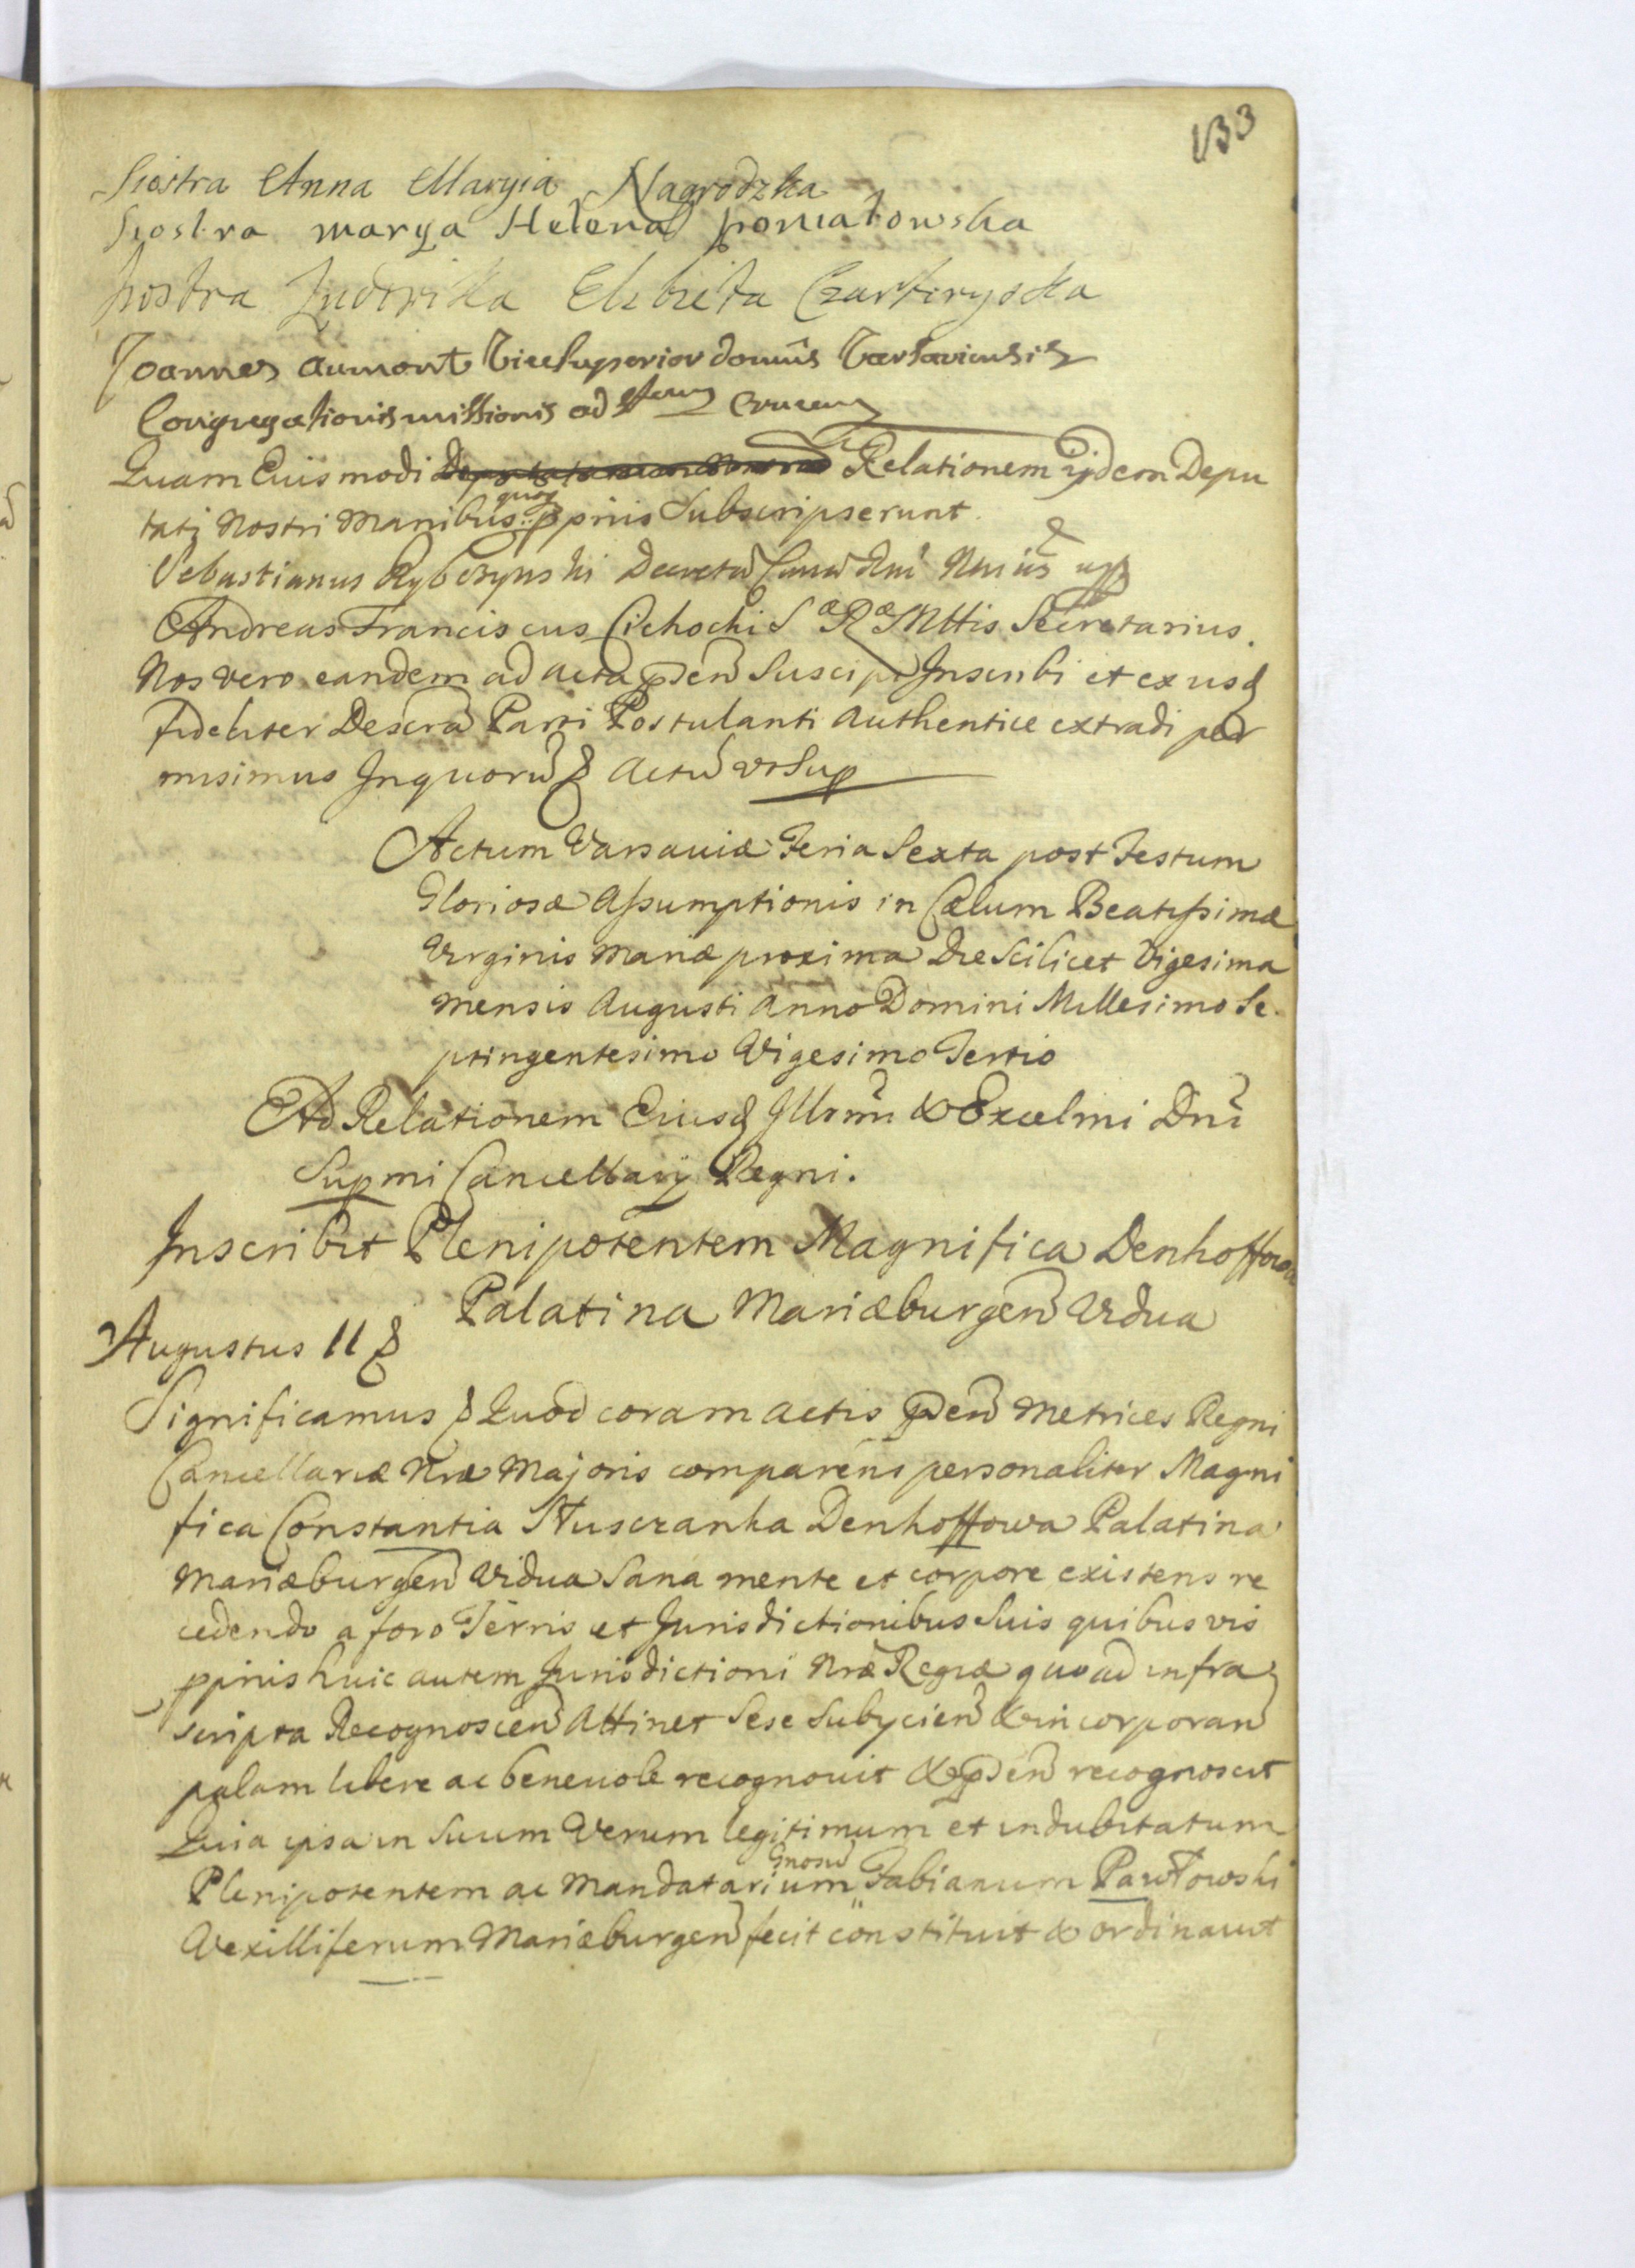 133
Siostra Anna Maryia Nagrodzka
Siostra marya Helena poniatowska
siostra Ludwika Elzbieta Czartoryska
Joannes Aumont Vicesuperior domûs Varsaviensis
Congregationis missionis ad stam Crucem
Quam Eiusmodi Relationem ijdem Depu
tati Nostri Manibus quoq pprijs Subscripserunt.
Sebastianus Rybczynski Decretorũ Curiæ Rni Nrius mpp
Andreas Franciscus Cichocki Sæ Ræ Mttis Secretarius.
Nos vero eandem ad acta pñ Suscipi Inscribi et ex usq
fideliter Descrã Parti Postulanti Authentice extradi per
misimus Inquorũ & Actũ vt Sup
Actum Varsaviæ Feria Sexta post Festum
Gloriosæ Assumptionis in Cælum Beatissimæ
Virginis Mariæ proxima Die Scilicet Vigesima
Mensis Augusti Anno Domini Millesimo Se
ptingentesimo Vigesimo Tertio
Ad Relationem Eiusq Illrmi & Excelmi Dni
Supmi Cancellarij Regni.
Inscribit Plenipotentem Magnifica Denhoffowa
Palatina Mariæburgeñ Vidua
Augustus II &
Significamus & Quod coram actis pñ Metrices Regni
Cancellariæ Nræ Majoris comparens personaliter Magni
fica Constantia Sluszczanka Denhoffowa Palatina
Mariæburgeñ Vidua Sana mente et corpore existens re
cedendo a foro Terris et Jurisdictionibus Suis quibusvis
pprijs huic autem Jurisdictioni Nræ Regiæ quoad infra
scripta Recognosceñ Attinet Sese Subijcieñ & incorporañ
palam libere ac benevole recognovit & pñ recognoscit
Quia ipsa in Suum Verum legitimum et indubitatum
Plenipotentem ac Mandatarium Gnosũ Fabianum Pawłowski
Vexilliferum Mariæburgeñ fecit constituit & ordinavit